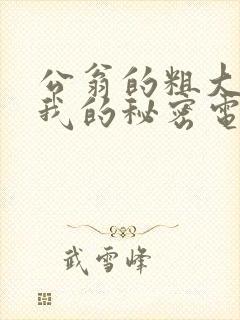 公翁的粗大
我的秘密电
武雪峰